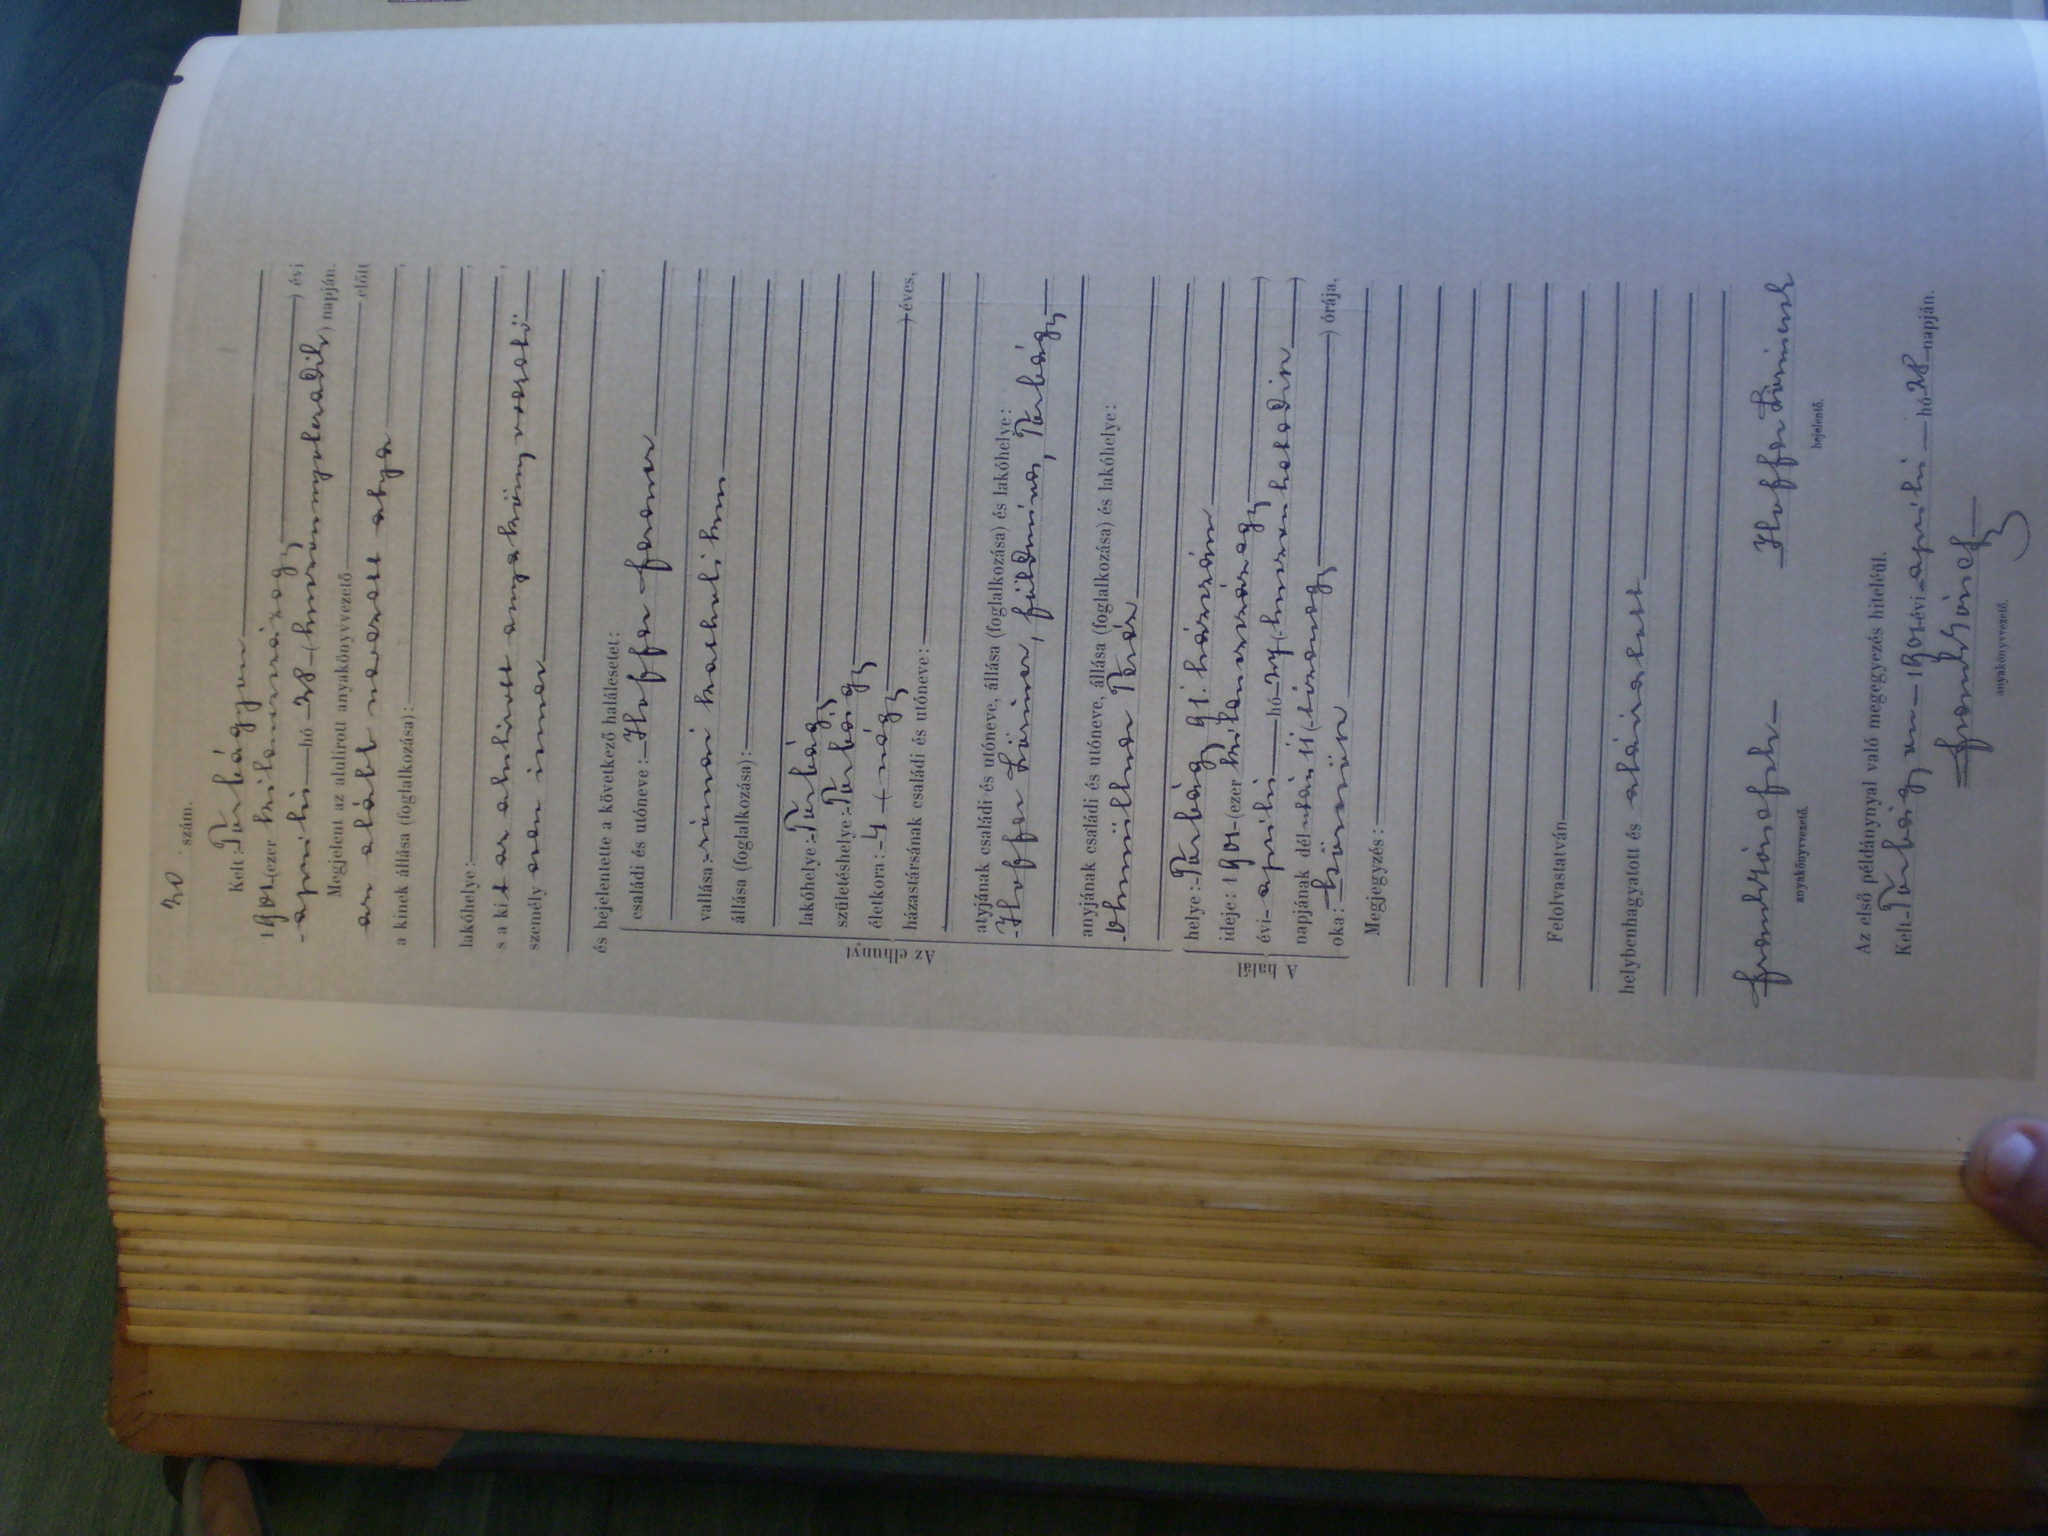 30 szám.
Kelt: Torbágyon
1901 (ezer kilenczszázegy) évi
április hó 28 (huszonnyolczadik) napján.
Megjelent az alulírott anyakönyvvezető előtt
az alább nevezett atya
a kinek állása (foglalkozása):
lakóhelye:
s a kit az alulírott anyakönyvvezető
személyesen ismer
és bejelentette a következő halálesetet:
Az elhunyt
családi és utóneve: Hoffer Ferencz
vallása: római katholikus
állása (foglalkozása):
lakóhelye: Torbágy
születéshelye: Torbágy
életkora: 4 (négy) éves,
házastársának családi és utóneve:
atyjának családi és utóneve, állása (foglalkozása) és lakóhelye:
Hoffer Lőrincz, földműves, Torbágy
anyjának családi és utóneve, állása (foglalkozása) és lakóhelye:
Ohmüllner Teréz
A halál
helye: Torbágy 91. házszám
ideje: 1901 (ezer kilenczszázegy)
évi április hó 27 (huszonhetedik)
napjának délután 11 (tizenegy) órája,
oka:
Megjegyzés:
Felolvastatván
helybenhagyatott és aláíratott
anyakönyvvezető.
Hoffer Lőrincz
bejelentő.
Az első példánynyal való megegyezés hiteléül.
Kelt Torbágyon 1901 évi április hó 28 napján.
anyakönyvvezető.